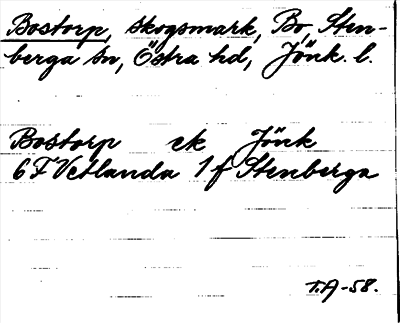 Bostorp, skogsmark, Bo, Sten-
berga sn, Östra hd, Jönk. l.
Bostorp ek Jönk
6 F Vetlanda 1 f Stenberga
T.A-58.